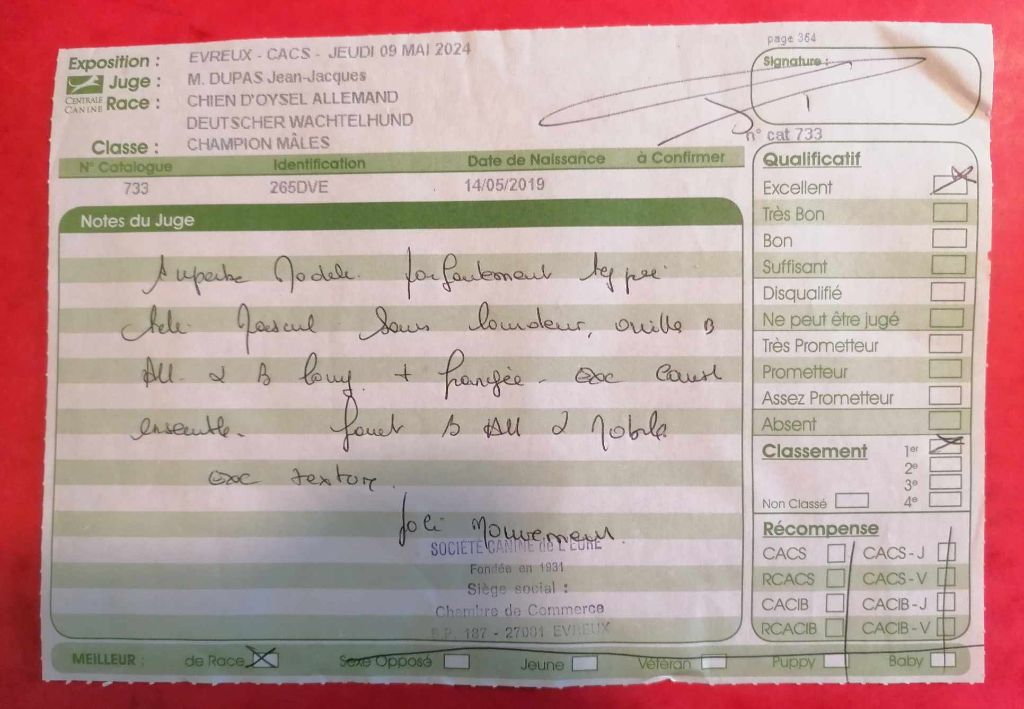 page 364
Exposition : EVREUX - CACS - JEUDI 09 MAI 2024
Signature :
Juge : M. DUPAS Jean-Jacques
CENTRALE CANINE
Race : CHIEN D'OYSEL ALLEMAND
DEUTSCHER WACHTELHUND
n° cat 733
Classe : CHAMPION MÂLES
N° Catalogue Identification Date de Naissance à Confirmer
733 265DVE 14/05/2019
Notes du Juge
Superbe Modele. Parfaitement typé
tête Mascul sans lourdeur, oreille B
Att. & B long. + frangée - exc const
ensemble. fouet B Att & Mobile
exc texture.
Joli Mouvement.
SOCIÉTÉ CANINE de L'EURE
Fondée en 1931
Siège social :
Chambre de Commerce
B.P. 187 - 27001 EVREUX
Qualificatif
Excellent
Très Bon
Bon
Suffisant
Disqualifié
Ne peut être jugé
Très Prometteur
Prometteur
Assez Prometteur
Absent
Classement 1er
2e
3e
Non Classé 4e
Récompense
CACS CACS - J
RCACS CACS - V
CACIB CACIB - J
RCACIB CACIB - V
MEILLEUR : de Race Sexe Opposé Jeune Vétéran Puppy Baby